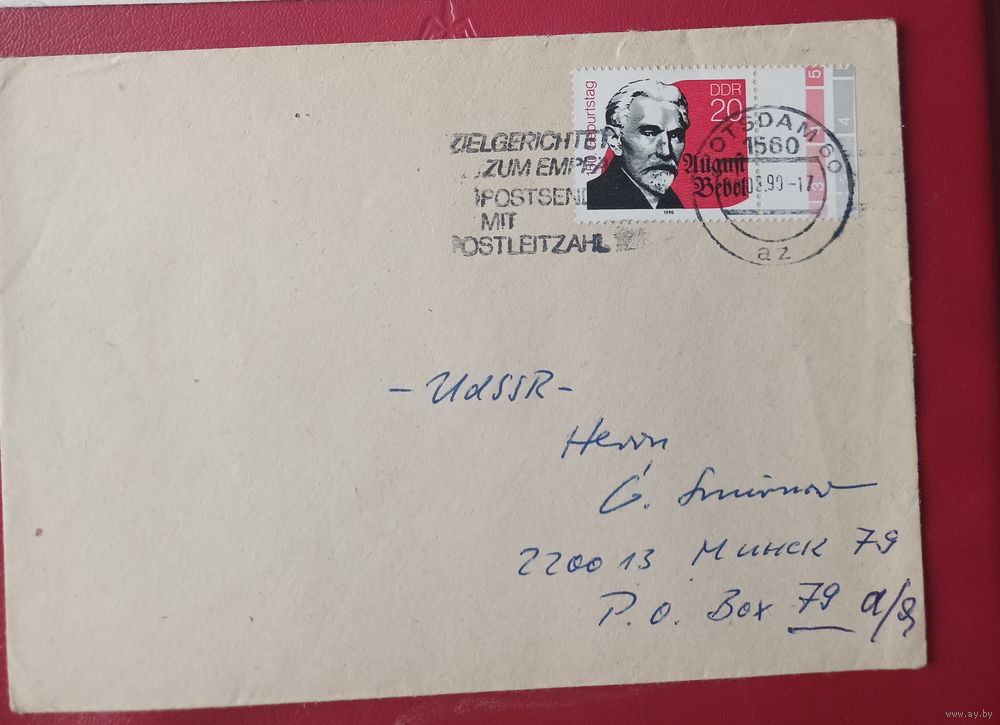 ZIELGERICHTET
ZUM EMPF
POSTSEND
MIT
POSTLEITZAHL
150. Geburtstag
DDR
20
August
Bebel
1990
5
4
3
POTSDAM 60
1560
08.90-17
az
- UdSSR -
Herrn
G. Smirnow
220013 МИНСК 79
P.O. Box 79 а/я
www.ay.by